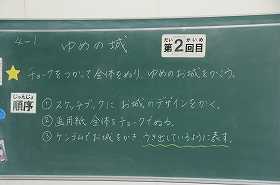 4-1
ゆめの城
だい かいめ
第2回目
チョークをつかって全体をぬり、ゆめのお城をかこう。
じゅんじょ
順序
① スケッチブックに お城のデザインをかく。
② 画用紙 全体をチョークでぬる。
③ ケシゴムでお城をかき うき出しているように表す。